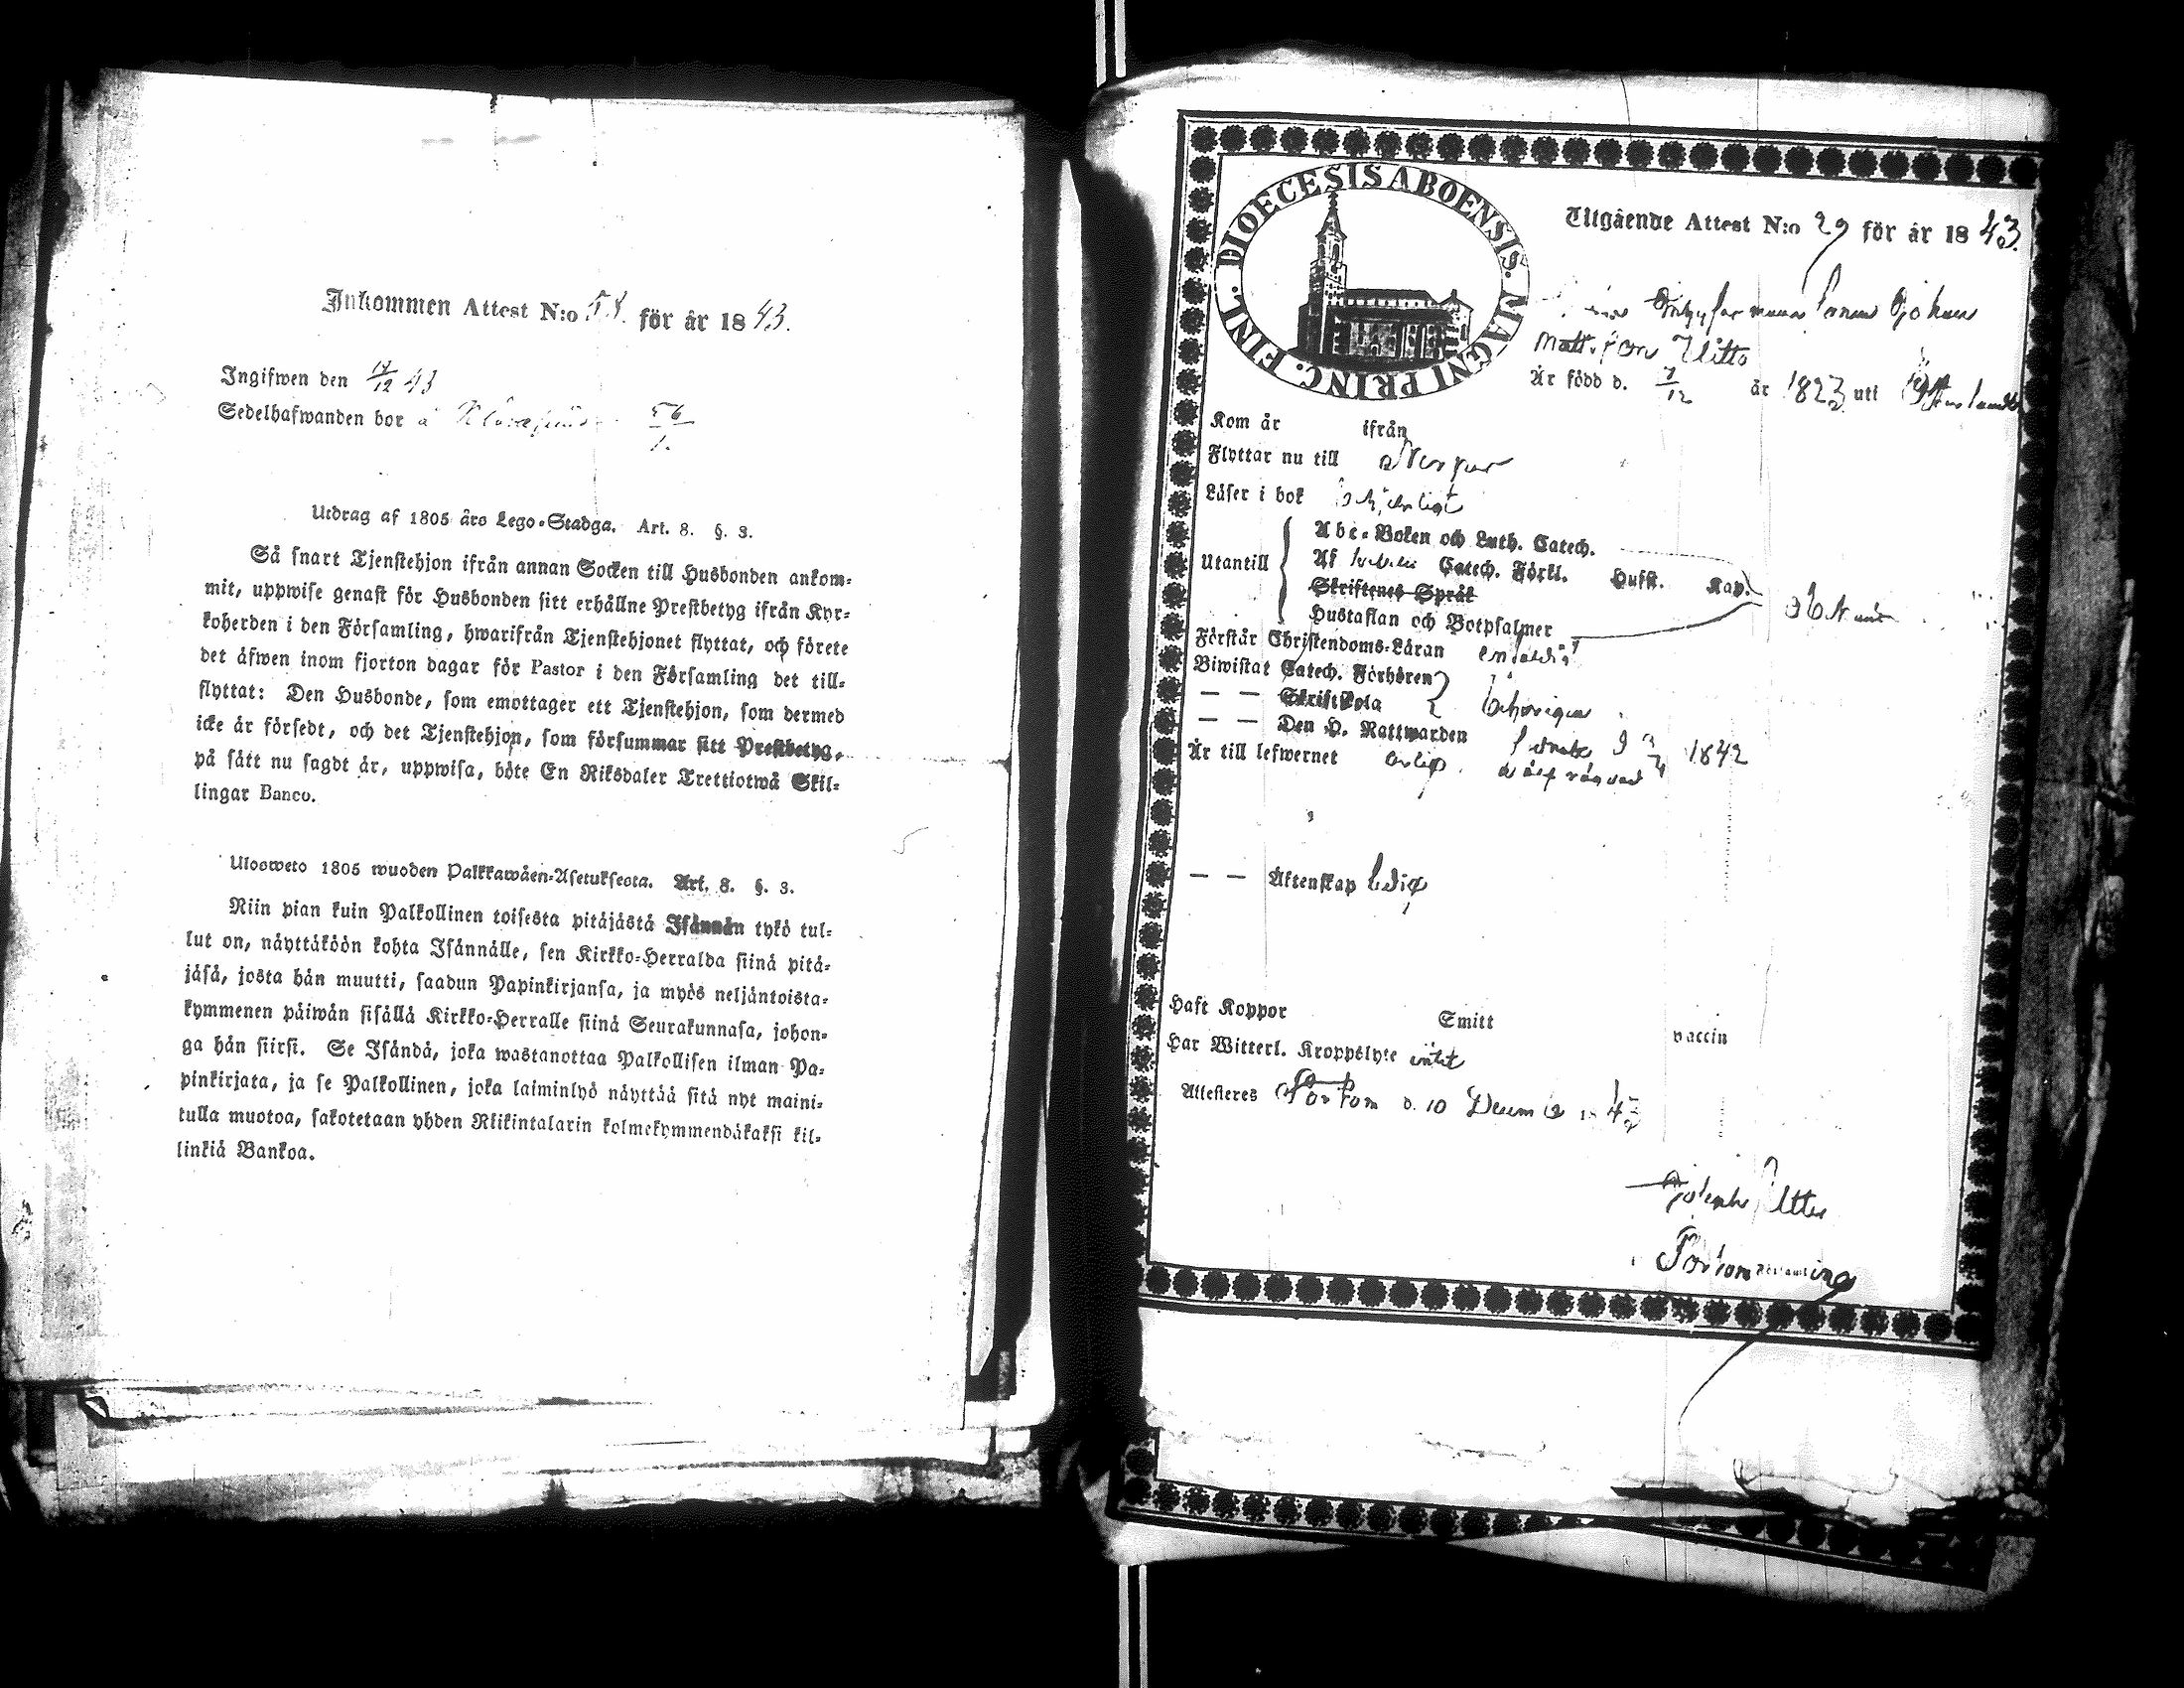 Inkommen Attest N:o 58. för år 1843.
Ingifwen den 17/12 43
Sedelhafwanden bor å 56/1.
Utdrag af 1805 års Lego-Stadga. Art. 8. §. 3.
Så snart Tjenstehjon ifrån annan Socken till Husbonden ankom-
mit, uppwise genast för Husbonden sitt erhållne Prestbetyg ifrån Kyr-
koherden i den Församling, hwarifrån Tjenstehjonet flyttat, och förete
det äfwen inom fjorton dagar för Pastor i den Församling det till-
flyttat: Den Husbonde, som emottager ett Tjenstehjon, som dermed
icke är försedt, och det Tjenstehjon, som försummar sitt Prestbetyg,
på sätt nu sagdt är, uppwisa, böte En Riksdaler Trettiotwå Skil-
lingar Banco.
Ulosweto 1805 wuoden Palkkawäen-Asetuksesta. Art. 8. §. 3.
Niin pian kuin Palkollinen toisesta pitäjästä Isännän tykö tul-
lut on, näyttäköön kohta Isännälle, sen Kirkko-Herralda siinä pitä-
jäsä, josta hän muutti, saadun Papinkirjansa, ja myös neljäntoista-
kymmenen päiwän sisällä Kirkko-Herralle siinä Seurakunnasa, johon-
ga hän siirsi. Se Isändä, joka wastanottaa Palkollisen ilman Pa-
pinkirjata, ja se Palkollinen, joka laiminlyö näyttää sitä nyt maini-
tulla muotoa, sakotetaan yhden Riikintalarin kolmekymmendäkaksi kil-
linkiä Bankoa.
DIOECESIS ABOENSIS. MAGNI PRINC. FINL.
Utgående Attest N:o 29 för år 1843.
Johan
Mattsson Uitto
Är född d. 7/12 år 1823 uti
Kom år ifrån
Flyttar nu till
Läser i bok
Utantill
Abc-Boken och Luth. Catech.
Af Catech. Förkl. Hufst. Kap.
Skriftenes Språk
Hustaflan och Botpsalmer
Förstår Christendoms-Läran enfaldigt
Biwistat Catech. Förhören
— — Skriftskola behörigen
— — Den H. Nattwarden 1842
Är till lefwernet ärlig
— — Äktenskap ledig
Haft Koppor Smitt vaccin
Har Witterl. Kroppslyte intet
Attesteras Pörtom d. 10 Decemb 1843
Pörtom Församling